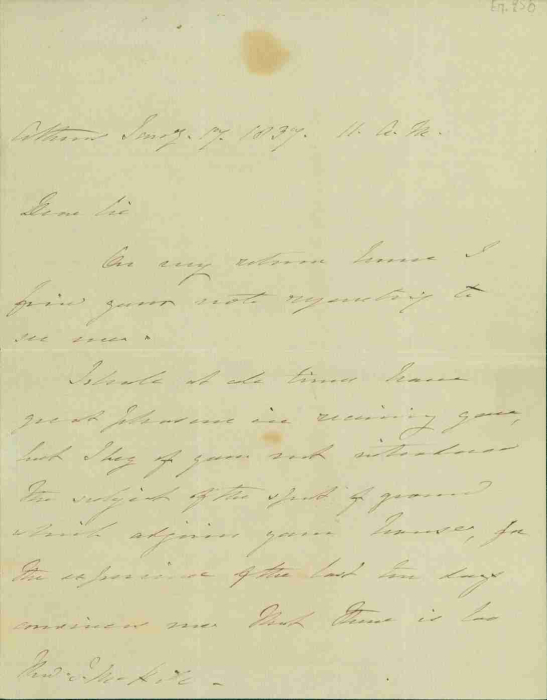 Athens Jany. 17. 1837. 11. A. M.
Dear Sir
On my return home I
find your note requesting to
see me.
I shall at all times have
great pleasure in receiving you,
but I beg of you not introduce
the subject of the spot of ground
which adjoins your house, for
the experience of the last ten days
convinces me that there is too
Revd. J.